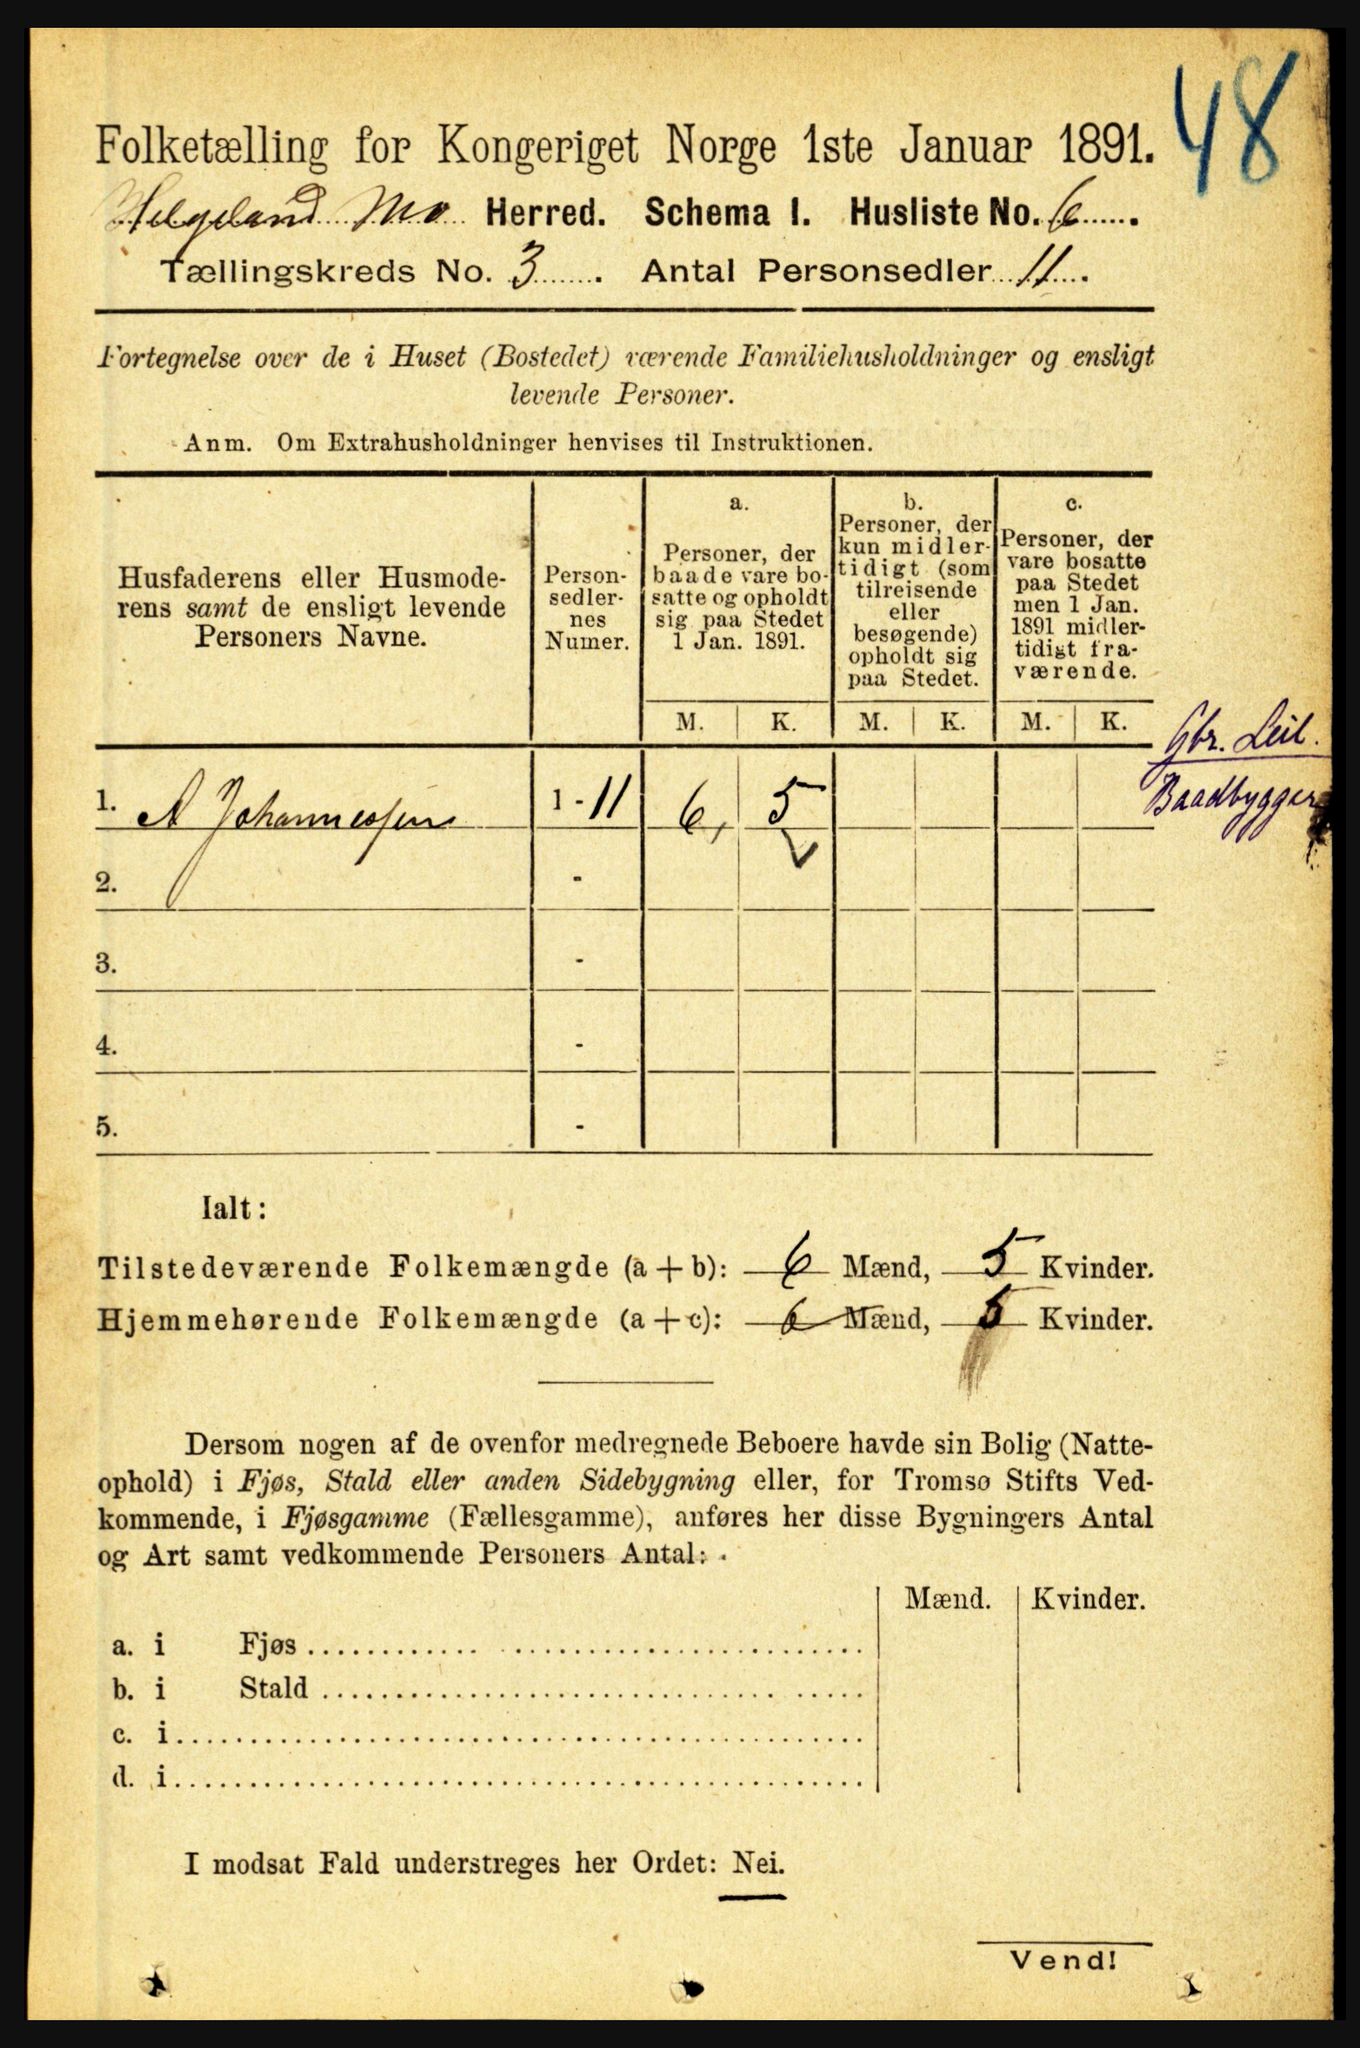 48
Folketælling for Kongeriget Norge 1ste Januar 1891.
Helgeland Mo Herred. Schema I. Husliste No. 6.
Tællingskreds No. 3. Antal Personsedler 11.
Fortegnelse over de i Huset (Bostedet) værende Familiehusholdninger og ensligt
levende Personer.
Anm. Om Extrahusholdninger henvises til Instruktionen.
Husfaderens eller Husmode-
rens samt de ensligt levende
Personers Navne.
Person-
sedler-
nes
Numer.
a.
Personer, der
baade vare bo-
satte og opholdt
sig paa Stedet
1 Jan. 1891.
b.
Personer, der
kun midler-
tidigt (som
tilreisende
eller
besøgende)
opholdt sig
paa Stedet.
c.
Personer, der
vare bosatte
paa Stedet
men 1 Jan.
1891 midler-
tidigt fra-
værende.
M. K. M. K. M. K.
Gbr. Leil.
Baadbygger
1. A Johannessen 1 - 11 6, 5
2. -
3. -
4. -
5. -
Ialt:
Tilstedeværende Folkemængde (a + b): 6 Mænd, 5 Kvinder.
Hjemmehørende Folkemængde (a + c): 6 Mænd, 5 Kvinder.
Dersom nogen af de ovenfor medregnede Beboere havde sin Bolig (Natte-
ophold) i Fjøs, Stald eller anden Sidebygning eller, for Tromsø Stifts Ved-
kommende, i Fjøsgamme (Fællesgamme), anføres her disse Bygningers Antal
og Art samt vedkommende Personers Antal:
Mænd. Kvinder.
a. i Fjøs
b. i Stald
c. i
d. i
I modsat Fald understreges her Ordet: Nei.
Vend!